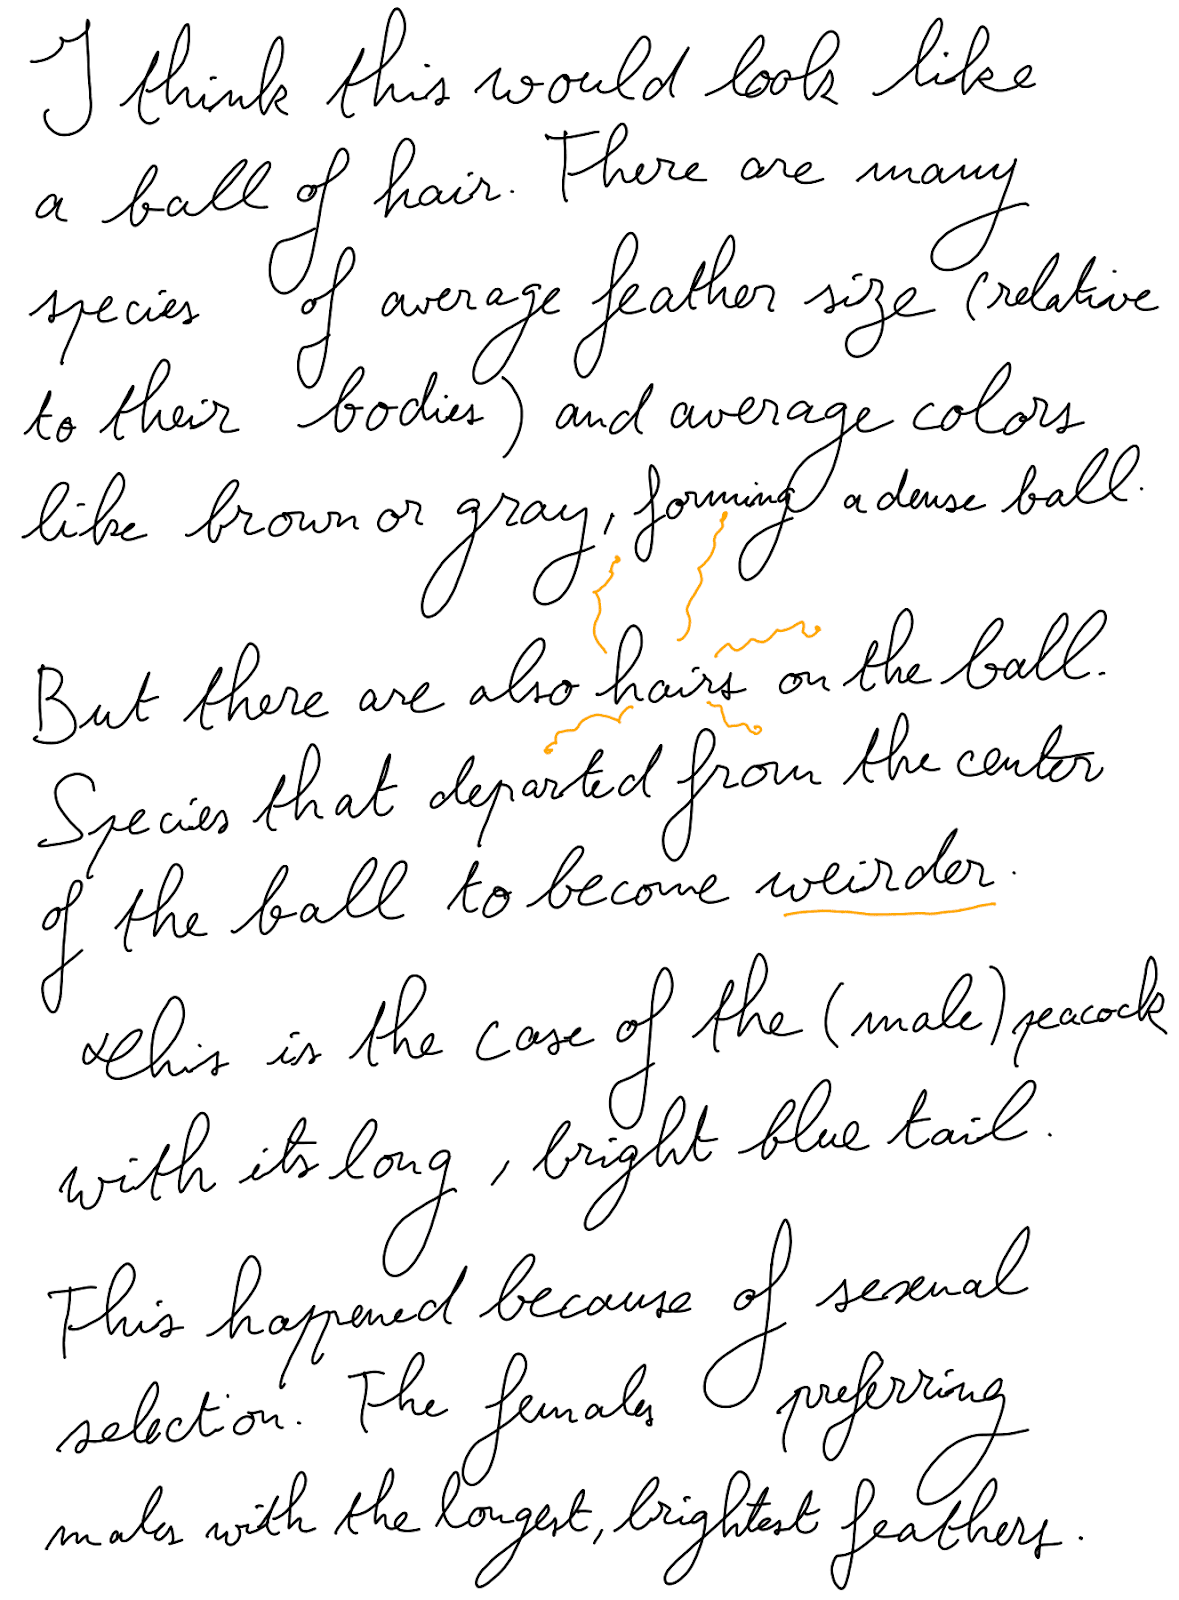 I think this would look like
a ball of hair. There are many
species of average feather size (relative
to their bodies) and average colors
like brown or gray, forming a dense ball.
But there are also hairs on the ball.
Species that departed from the center
of the ball to become weirder.
This is the case of the (male) peacock
with its long, bright blue tail.
This happened because of sexual
selection. The females preferring
males with the longest, brightest feathers.